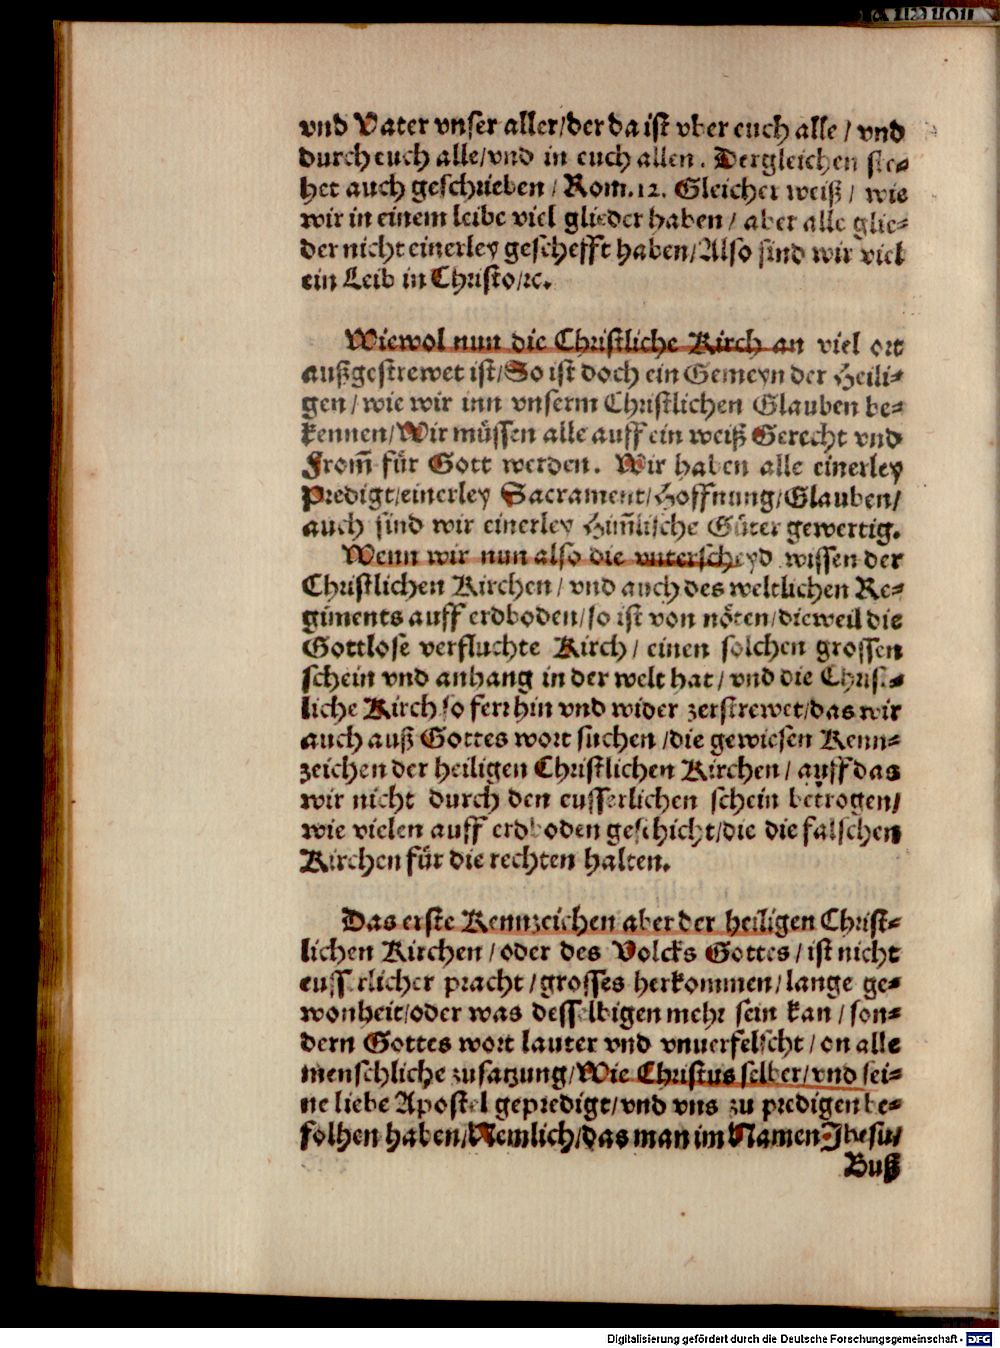 vnd Vater vnser aller/der da ist vber euch alle / vnd
durch euch alle/vnd in euch allen. Dergleichen ste⸗
het auch geschrieben / Rom. 12. Gleicher weiß / wie
wir in einem leibe viel glieder haben / aber alle glie⸗
der nicht einerley geschefft haben/Also sind wir viel
ein Leib in Christo/ꝛc.
Wiewol nun die Christliche Kirch an viel ort
außgestrewet ist/So ist doch ein Gemeyn der Heili⸗
gen / wie wir inn vnserm Christlichen Glauben be⸗
kennen/Wir müssen alle auff ein weiß Gerecht vnd
From̃ für Gott werden. Wir haben alle einerley
Predigt/einerley Sacrament/Hoffnung/Glauben/
auch sind wir einerley Him̃lische Güter gewertig.
Wenn wir nun also die vnterscheyd wissen der
Christlichen Kirchen / vnd auch des weltlichen Re⸗
giments auff erdboden/so ist von nöten/dieweil die
Gottlose verfluchte Kirch / einen solchen grossen
schein vnd anhang in der welt hat / vnd die Christ⸗
liche Kirch so ferr hin vnd wider zerstrewet/das wir
auch auß Gottes wort suchen /die gewiesen Kenn⸗
zeichen der heiligen Christlichen Kirchen / auff das
wir nicht durch den eusserlichen schein betrogen/
wie vielen auff erdboden geschicht/die die falschen
Kirchen für die rechten halten.
Das erste Kennzeichen aber der heiligen Christ⸗
lichen Kirchen /oder des Volcks Gottes / ist nicht
eusserlicher pracht / grosses herkommen / lange ge⸗
wonheit/oder was desselbigen mehr sein kan / son⸗
dern Gottes wort lauter vnd vnuerfelscht / on alle
menschliche zusatzung/Wie Christus selber/vnd sei⸗
ne liebe Apostel gepredigt/vnd vns zu predigen be⸗
folhen haben/Nemlich/das man im Namen Jhesu/
Buß
Digitalisierung gefördert durch die Deutsche Forschungsgemeinschaft - DFG